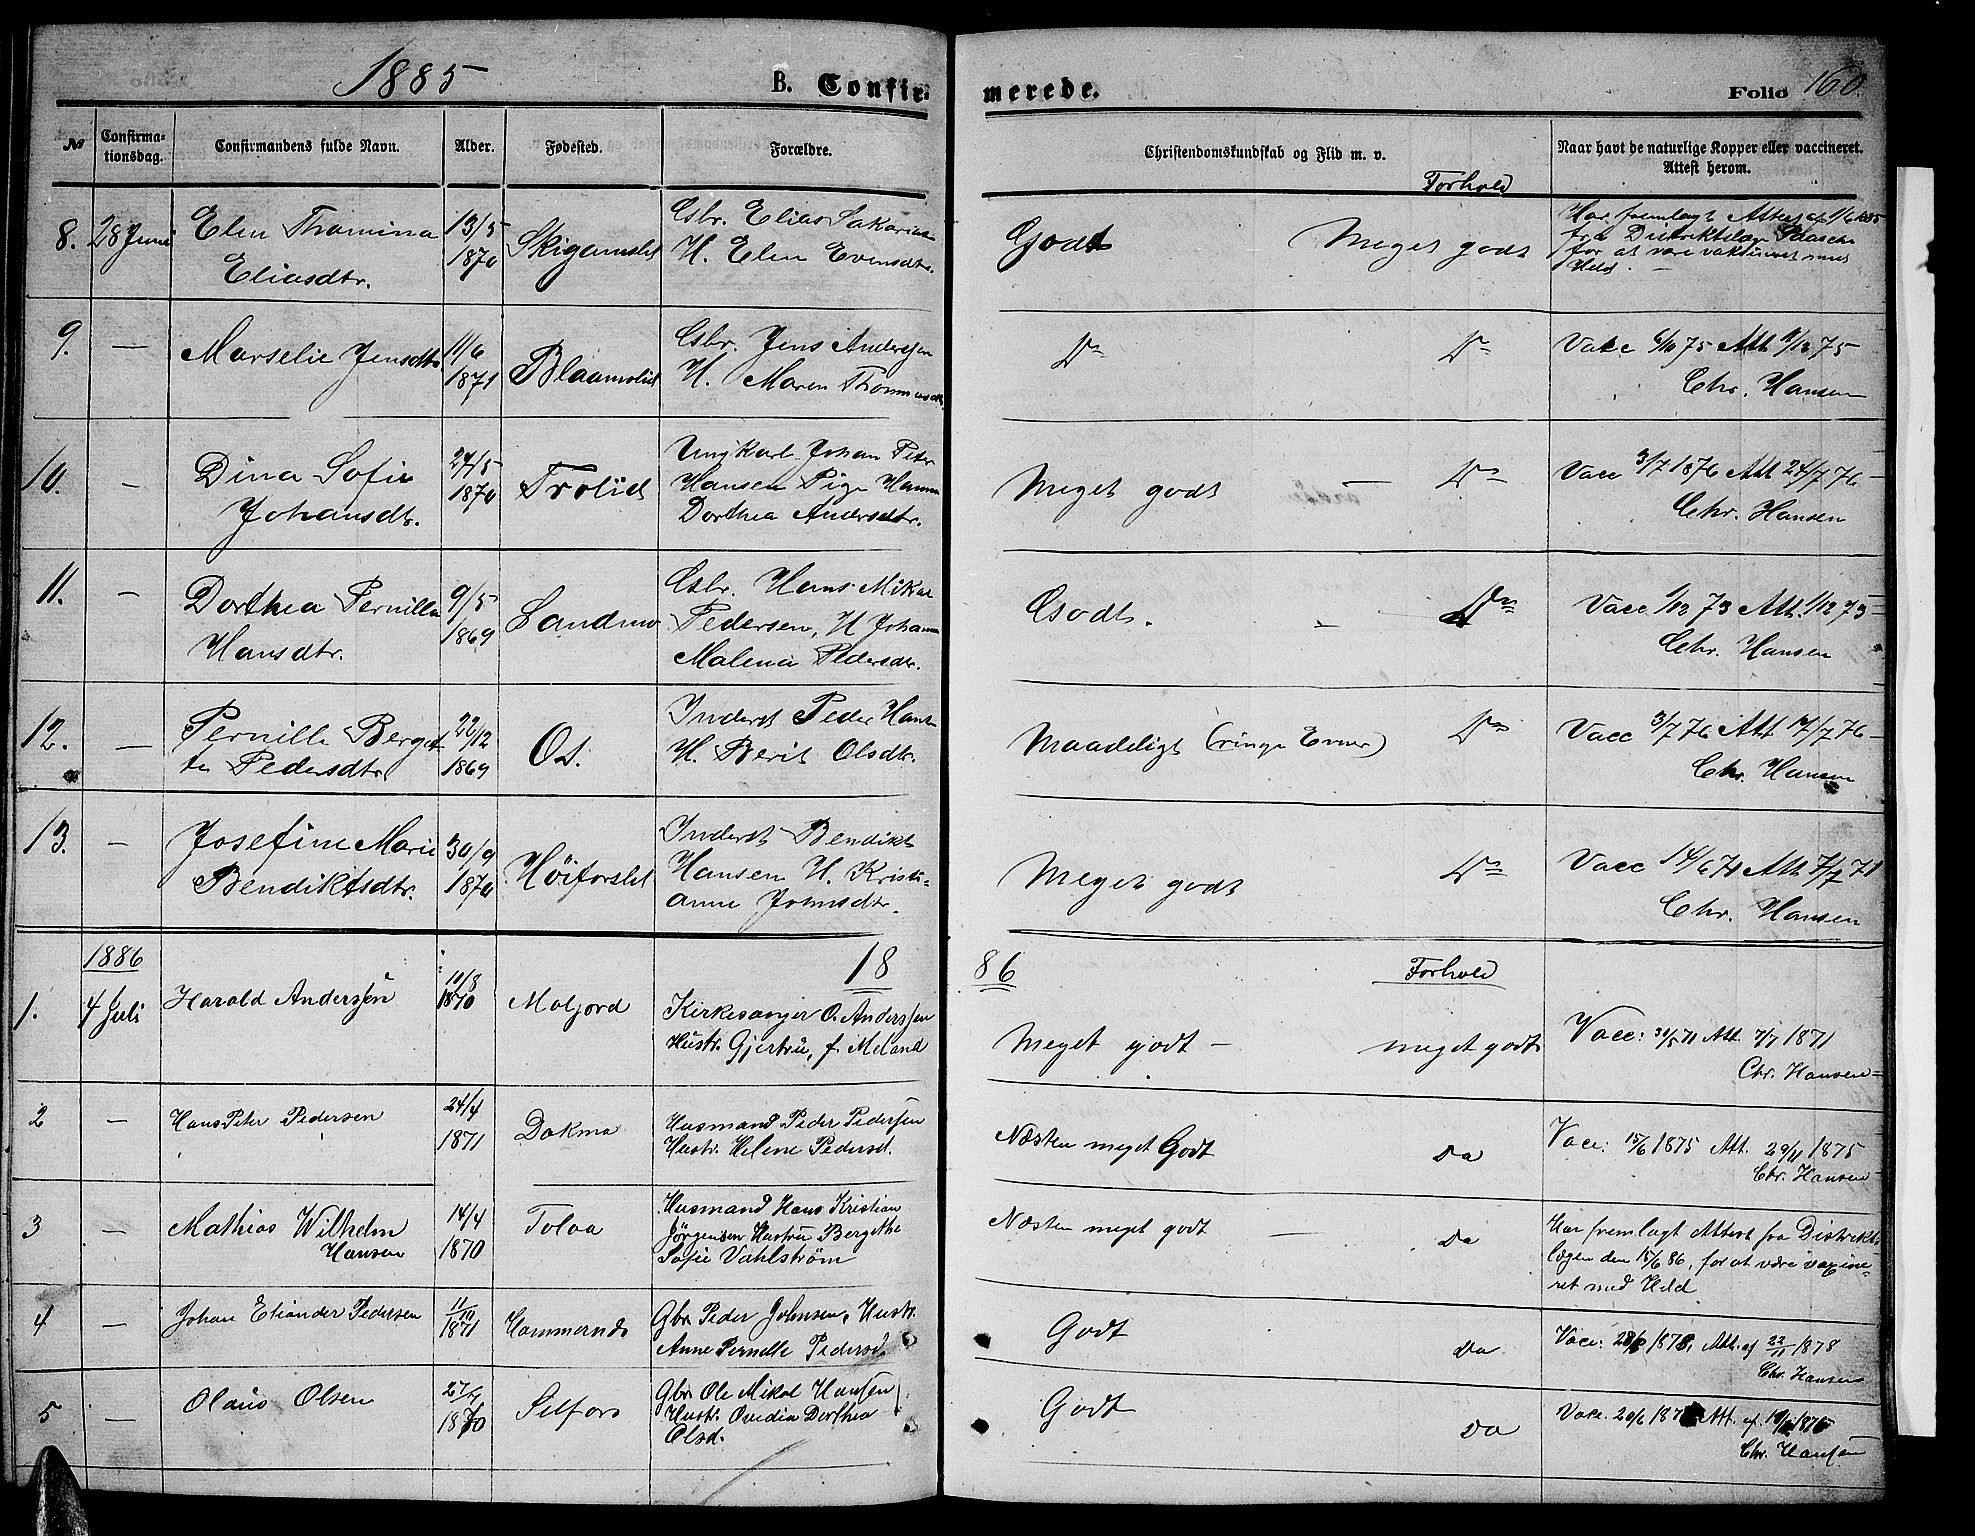 1885 B. Confirmerede. Folio 160.
№ Confirmationsdag. Confirmandens fulde Navn. Alder. Fødested. Forældre. Christendomskundskab og Flid m. v. Forhold Naar havt de naturlige Kopper eller vaccineret. Attest herom.
8. 28 Juni Elen Thomina Eliasdtr. 13/5 1870 Gbr. Elias Sakarias H. Elen Evensdtr. Godt Meget godt Har fremlagt Attest af 1/6 1885 fra Distriktslæge for at være vaksineret med Held. —
9. — Marselie Jensdtr 11/6 1871 Gbr. Jens Andersen H. Maren Thommasdtr. Do Do Vakc 6/10 75 Att 9/12 75 Chr. Hansen
10. — Dina Sofie Johansdtr. 24/5 1870 Trolid Ungkarl Johan Peter Hansen Pige Hanna Dorthea Andersdtr. Meget godt — Do Vacc 3/7 1876 Att 24/7 76 Chr. Hansen
11. — Dorthea Pernilla Hansdtr. 9/5 1869 Sandmo Gbr. Hans Mikal Pedersen, H Johanna Malena Pedersdtr. Godt. – Do Vacc 1/12 73 Att. 1/12 73 Chr. Hansen
12. — Pernille Bergette Pedersdtr. 22/12 1869 Os. Inderst Peder Hansen H. Berit Olsdtr. Maadeligt (ringe Evner) Do Vacc 3/7 76 Att 17/7 76 Chr. Hansen
13. — Josefine Marie Bendiktsdtr. 30/9 1870 Høiforslid Inderst Bendikt Hansen H. Kristianne Johnsdtr. Meget godt Do Vacc 14/6 71 Att 7/7 71 Chr. Hansen
1886 1886 Forhold
1. 4 Juli Harald Anderssen 10/8 1870 Moljord Kirkesanger O. Anderssen Hustr. Gjertru, f. Meland Meget godt – meget godt Vacc: 31/5 71 Att. 7/7 1871 Chr. Hansen
2 — Hans Peter Pedersen 24/4 1871 Dokma Husmand Peder Pedersen Hustr. Helene Pedersd. Næsten meget Godt Do Vacc: 15/6 1875 Att. 29/11 1875 Chr. Hansen
3 — Mathias Wilhelm Hansen 14/4 1870 Tolaa Husmand Hans Kristian Jörgensen Hustru Bergithe Sofie Vahlström Næsten meget godt — Do Har fremlagt Attest fra Distriktslægen den 15/6 86, for at være vaxineret med Held
4 — Johan Eliander Pedersen 11/10 1871 Hammernes Gbr Peder Johnsen, Hustr. Anne Pernelle Pedersd. Godt Do Vacc: 1878, Att. af 22/11 1878 Chr. Hansen
5 — Olaus Olsen 1870 Selfors Gbr Ole Mikal Hansen Hustr. Ovedia Dorthea Olsd. Godt Do Vakc. 20/6 Att. af. Chr. Hansen